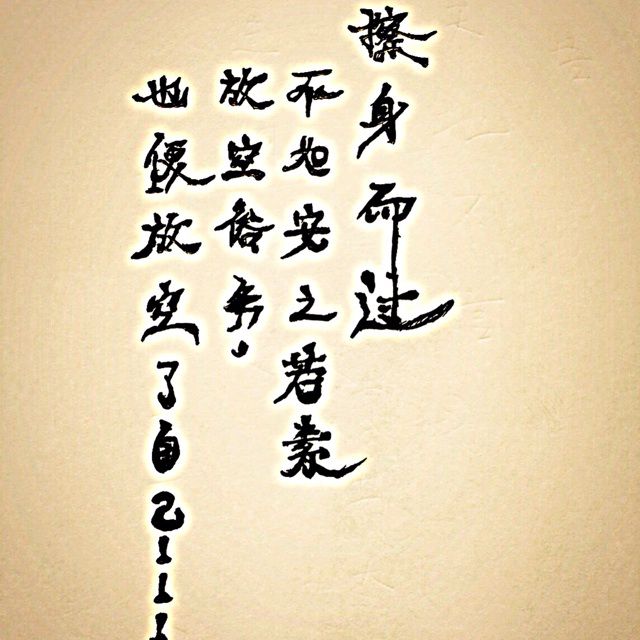 擦身而过
不如安之若素
放空俗务，
也便放空了自己……